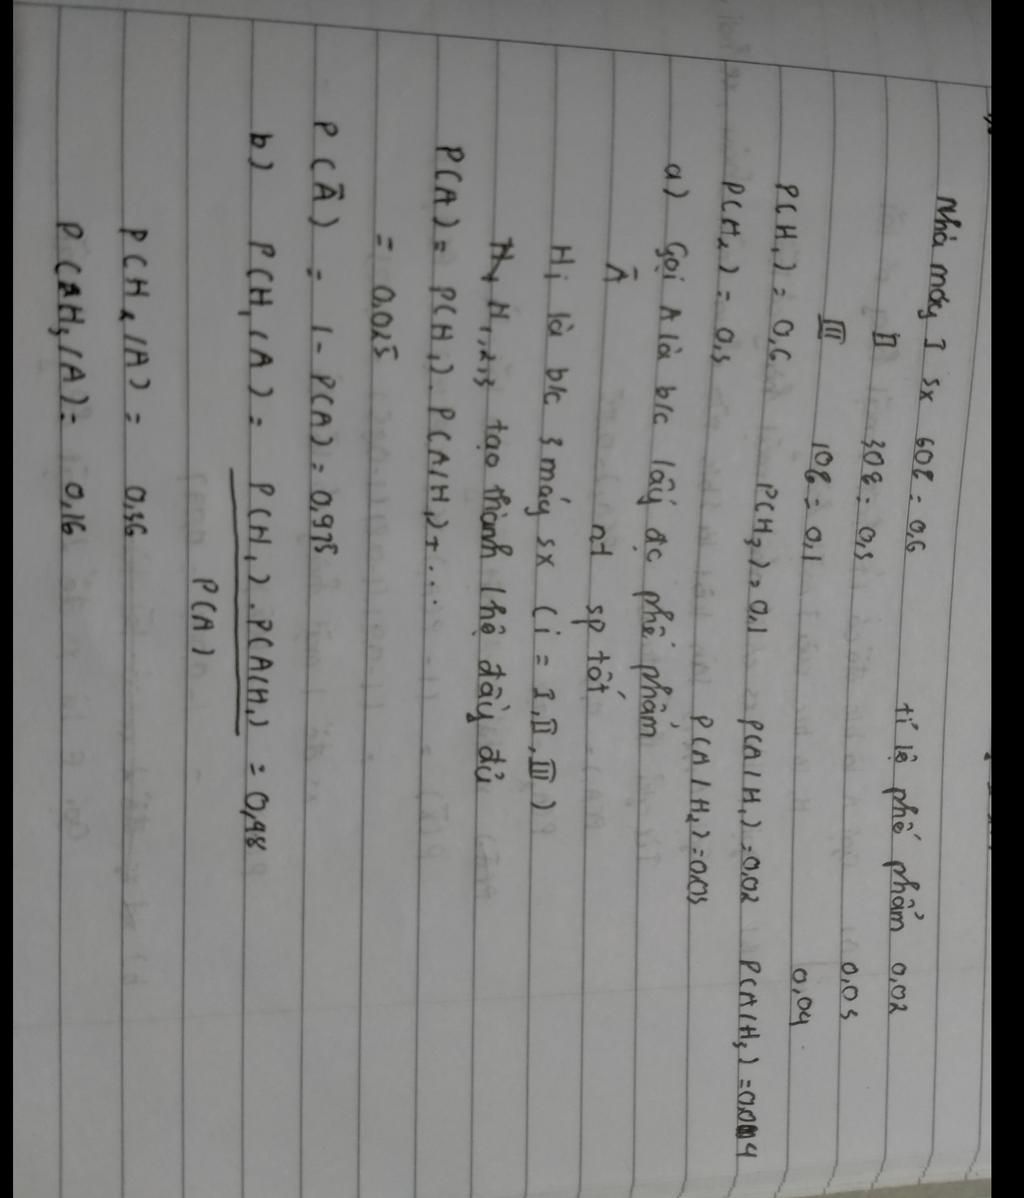 Nhà máy I sx 60% = 0,6 tỉ lệ phế phẩm 0,02
II 30% = 0,3 0,03
III 10% = 0,1 0,04
P(H₁) = 0,6 P(H₃) = 0,1 P(A/H₁) = 0,02 P(A/H₃) = 0,04
P(H₂) = 0,3 P(A/H₂) = 0,03
a) Gọi A là b/c lấy đc phế phẩm
Ā nt sp tốt
Hᵢ là b/c 3 máy sx (i = I, II, III)
H₁,₂,₃ tạo thành 1 hệ đầy đủ
P(A) = P(H₁). P(A/H₁) + ...
= 0,025
P(Ā) = 1 - P(A) = 0,975
b) P(H₁/A) = P(H₁). P(A/H₁) = 0,48
P(A)
P(H₂/A) = 0,36
P(H₃/A) = 0,16